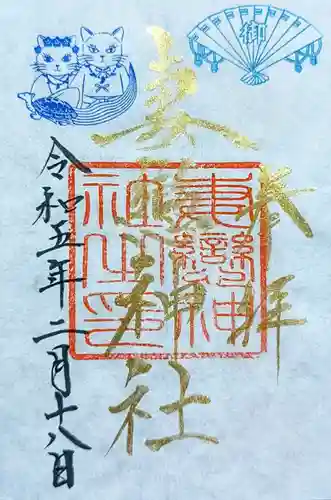 御
奉拝
妻戀神社
妻戀神
社之印
令和五年二月十八日